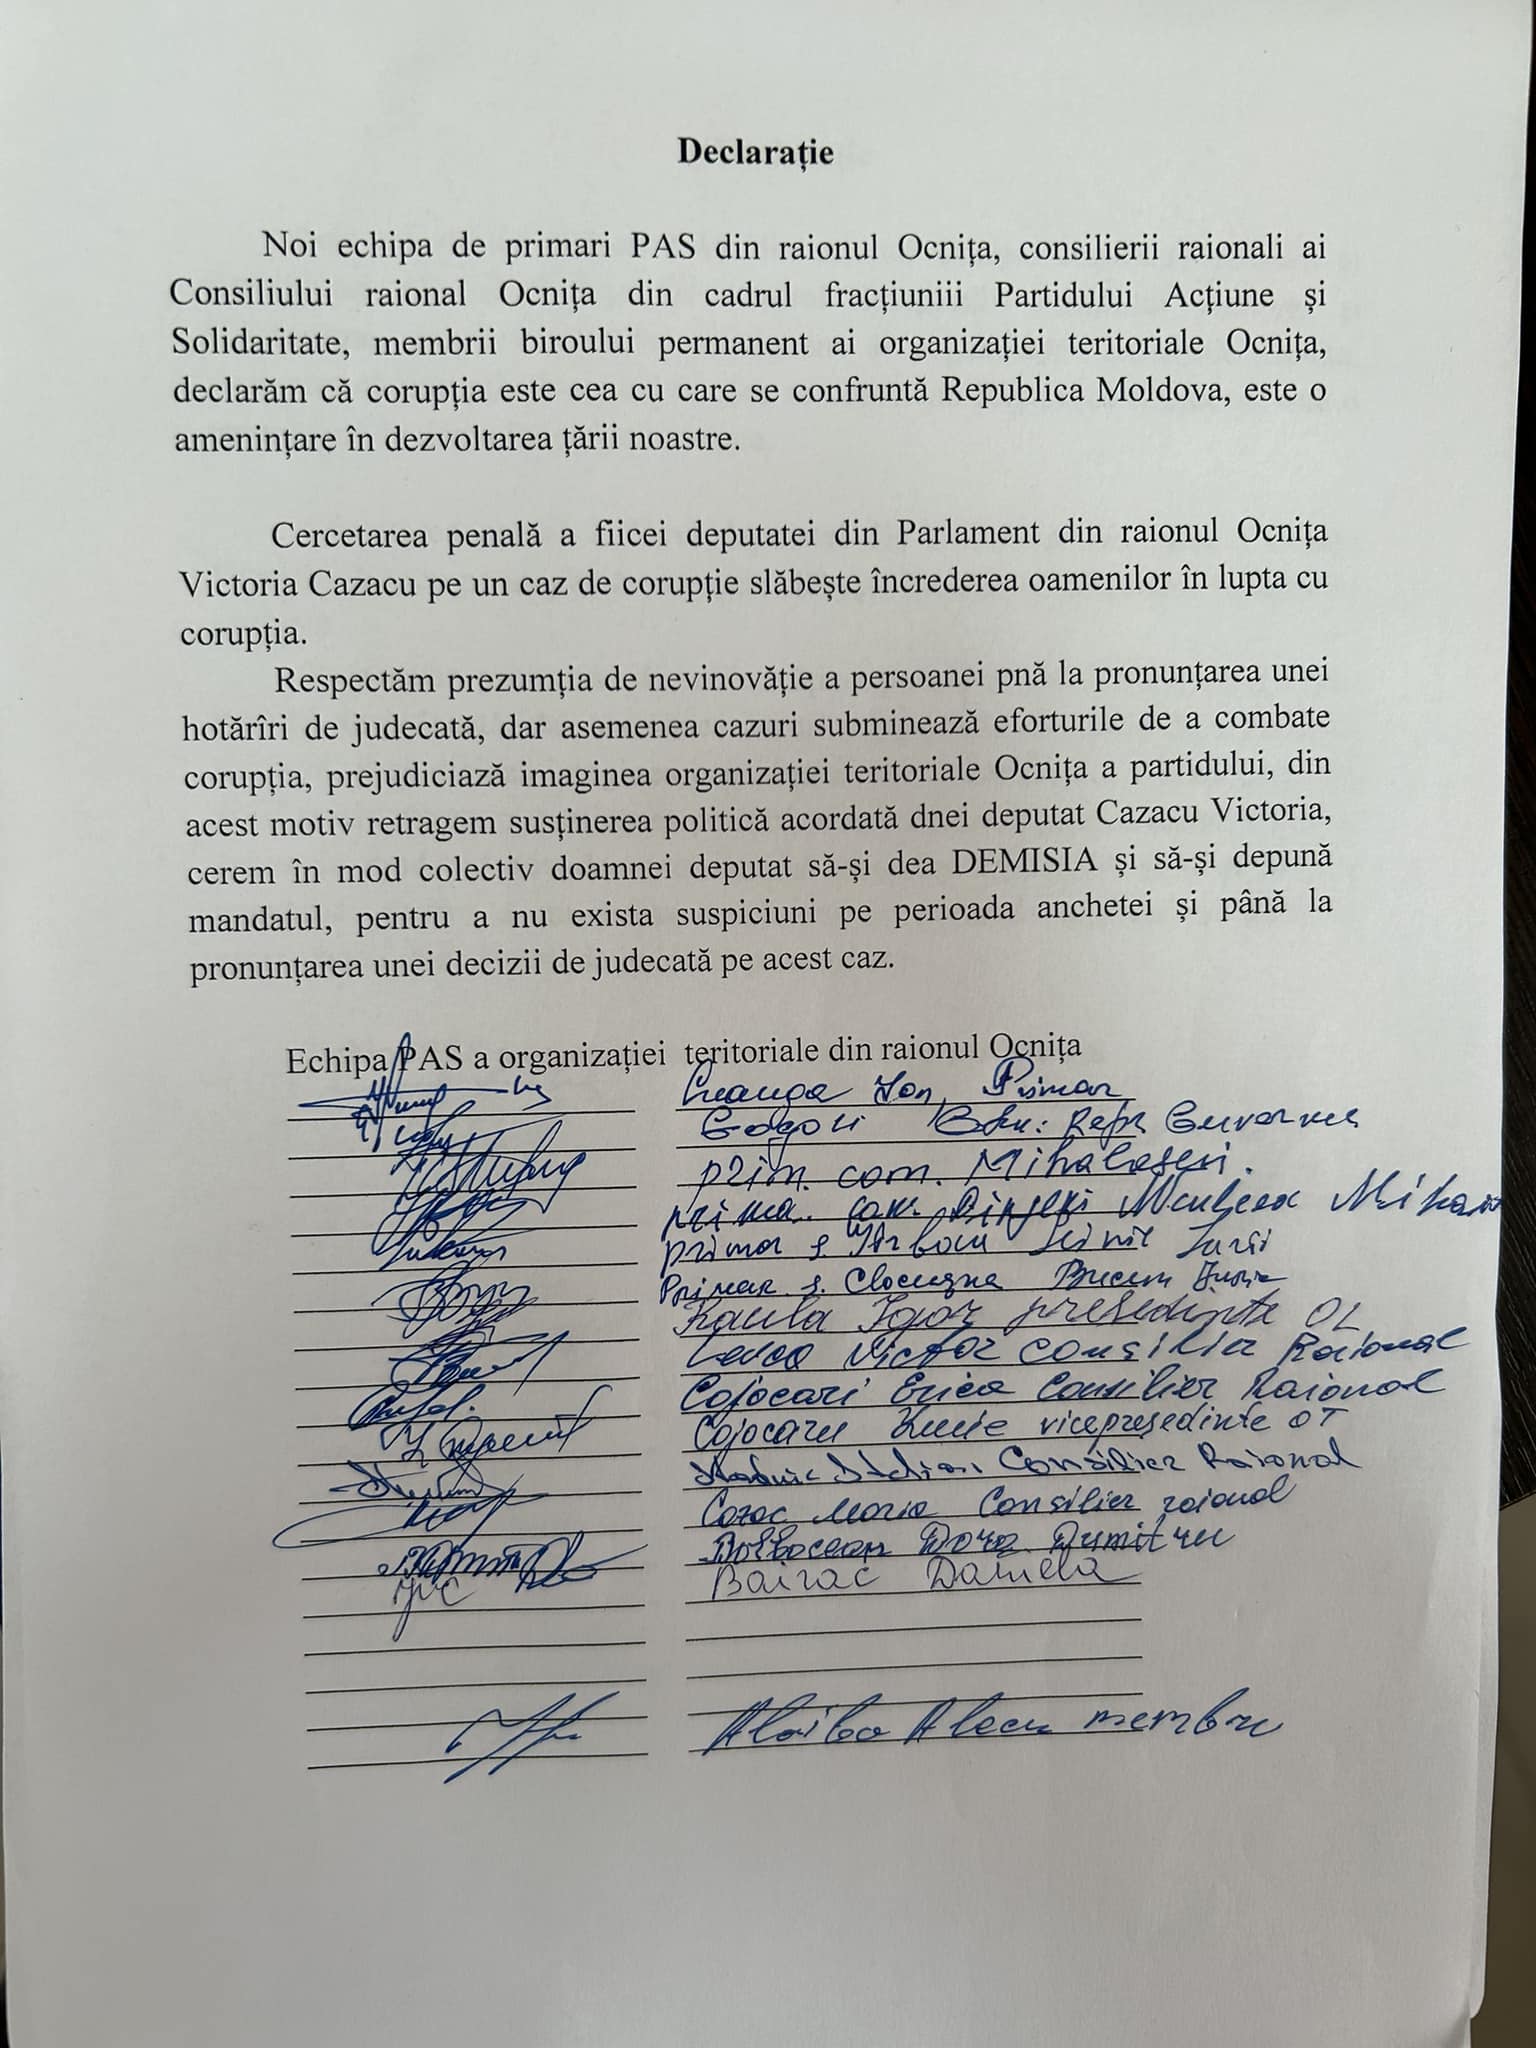 Declarație
Noi echipa de primari PAS din raionul Ocnița, consilierii raionali ai
Consiliului raional Ocnița din cadrul fracțiuniii Partidului Acțiune și
Solidaritate, membrii biroului permanent ai organizației teritoriale Ocnița,
declarăm că corupția este cea cu care se confruntă Republica Moldova, este o
amenințare în dezvoltarea țării noastre.
Cercetarea penală a fiicei deputatei din Parlament din raionul Ocnița
Victoria Cazacu pe un caz de corupție slăbește încrederea oamenilor în lupta cu
corupția.
Respectăm prezumția de nevinovăție a persoanei pnă la pronunțarea unei
hotărîri de judecată, dar asemenea cazuri subminează eforturile de a combate
corupția, prejudiciază imaginea organizației teritoriale Ocnița a partidului, din
acest motiv retragem susținerea politică acordată dnei deputat Cazacu Victoria,
cerem în mod colectiv doamnei deputat să-și dea DEMISIA și să-și depună
mandatul, pentru a nu exista suspiciuni pe perioada anchetei și până la
pronunțarea unei decizii de judecată pe acest caz.
Echipa PAS a organizației teritoriale din raionul Ocnița
Ion, Primar
prim. com.
Mihai
primar s.
Primar s.
Igor președinte OL
Victor Consilier Raional
Cojocari Consilier Raional
Cojocaru vicepreședinte OT
Consilier Raional
Maria Consilier raional
Dumitru
Bairac Daniela
membru